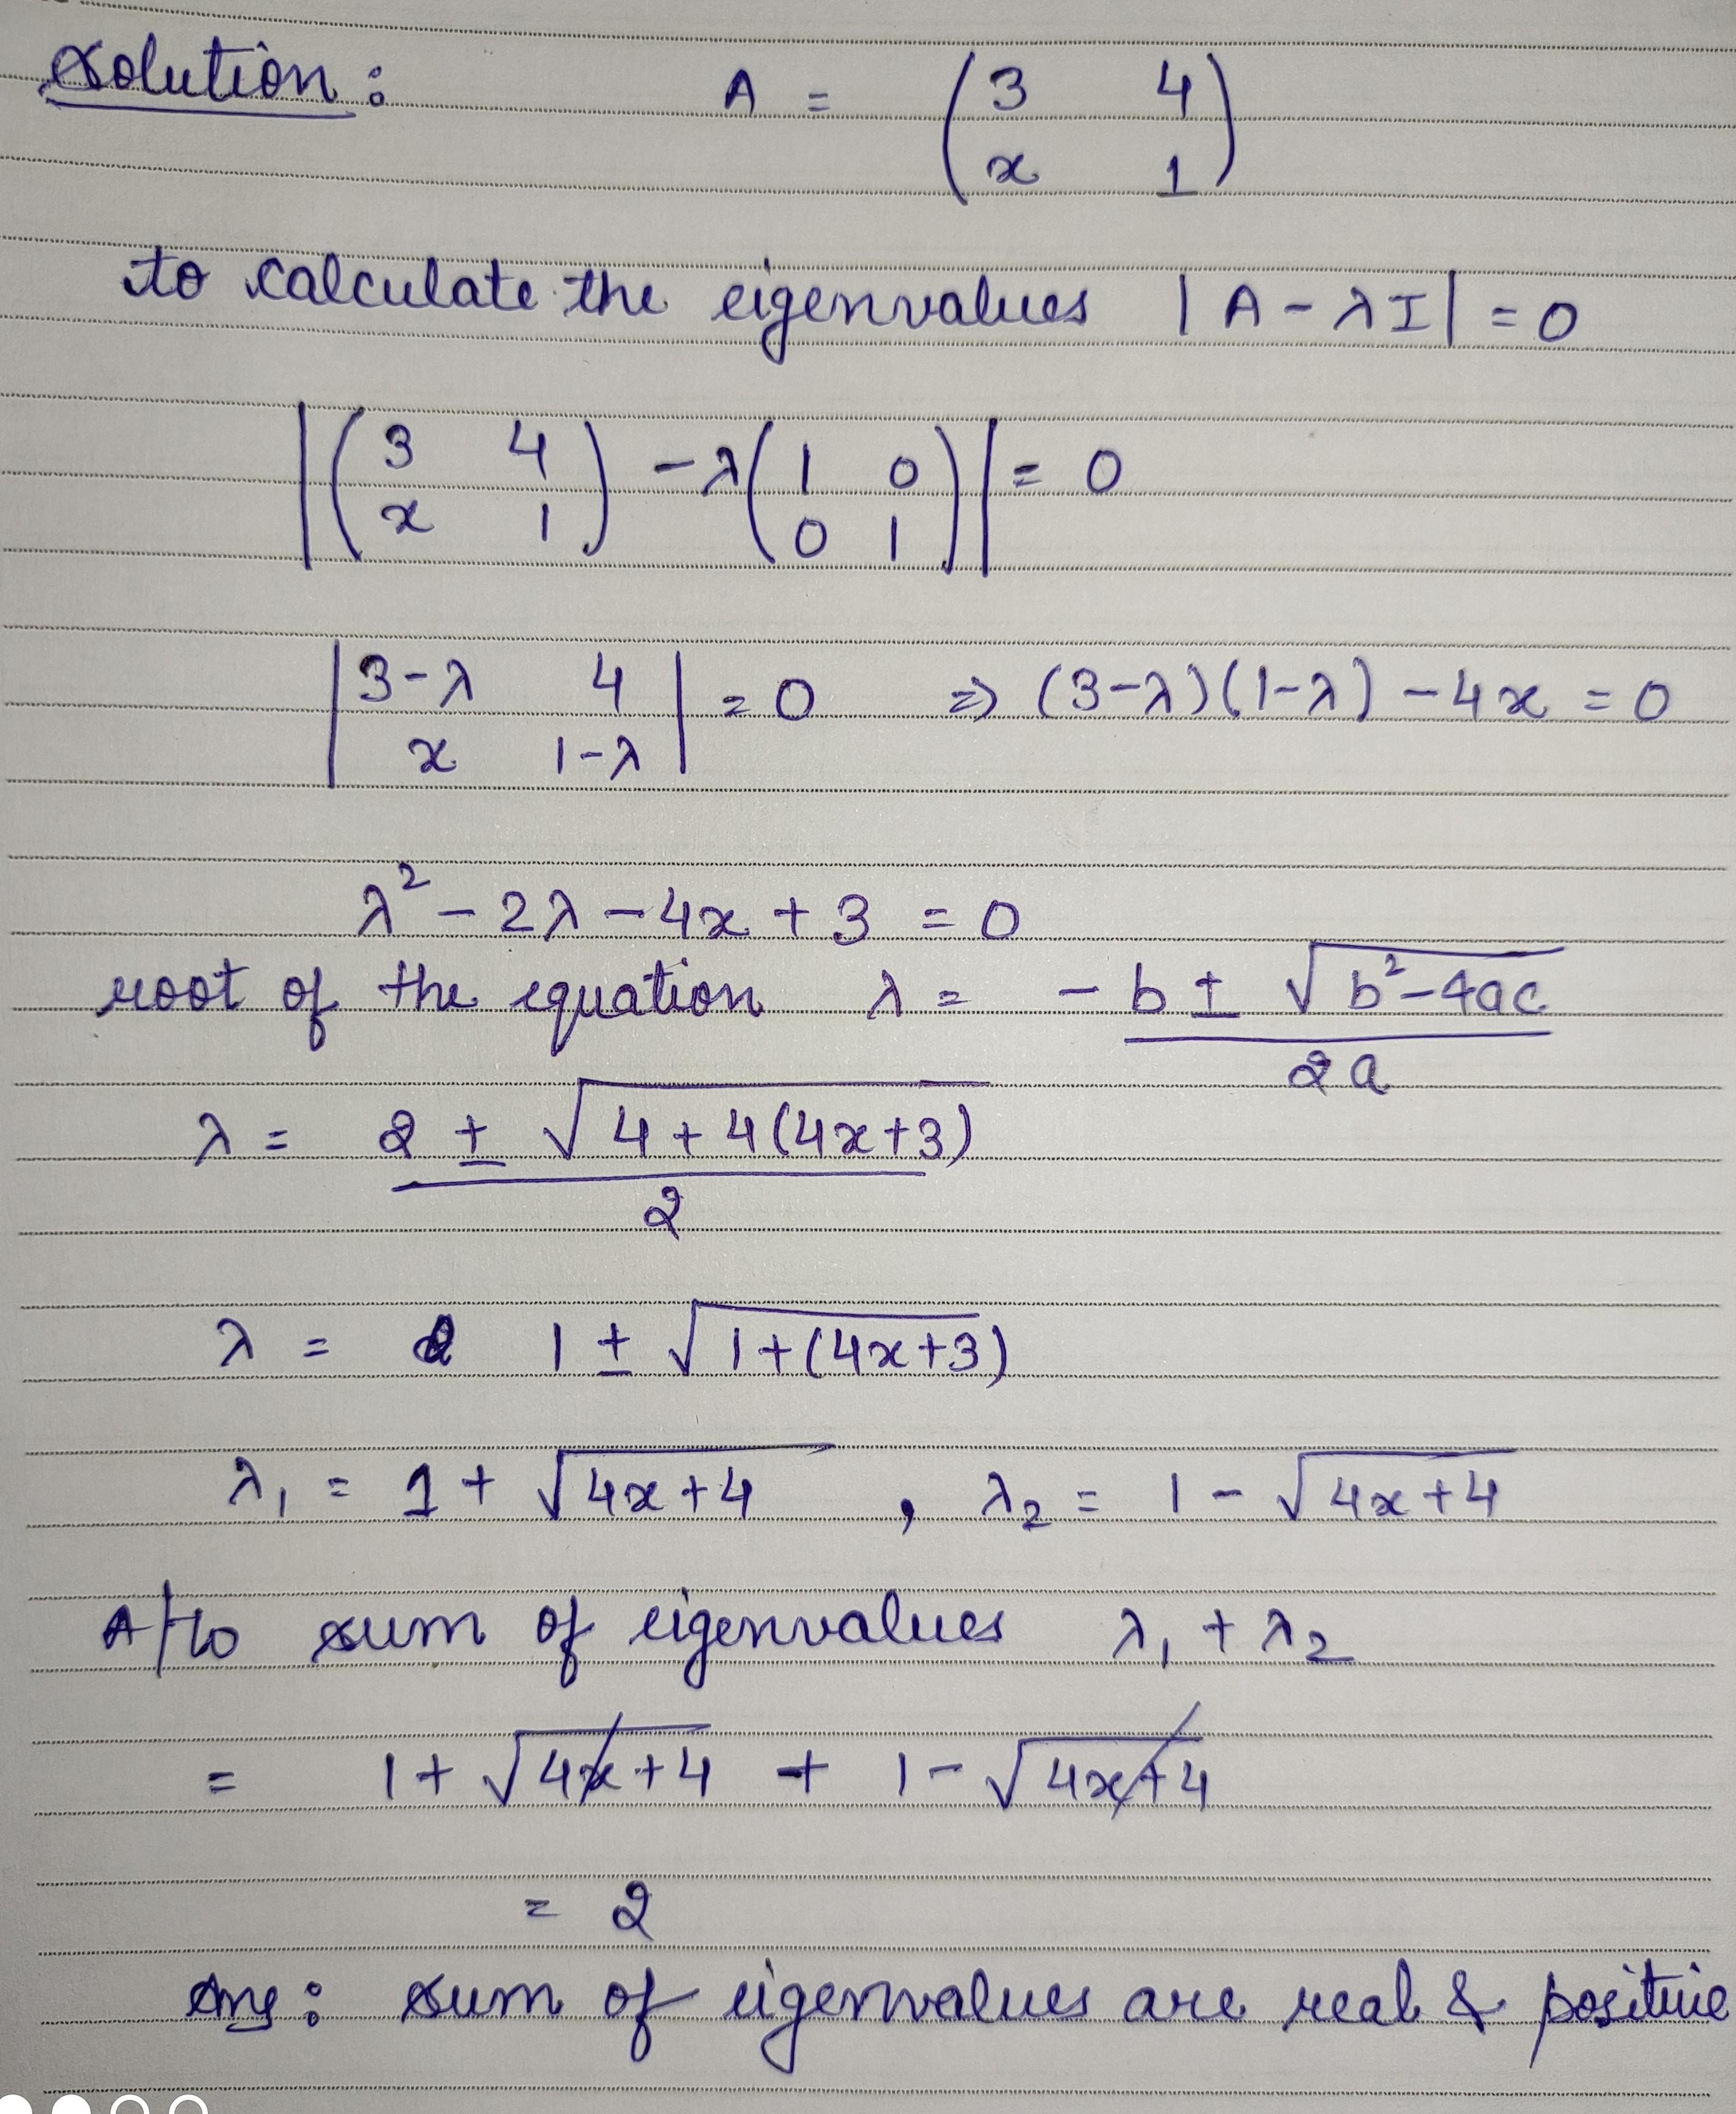 Solution : A = (3 4
x 1)
to calculate the eigenvalues |A - λI| = 0
|(3 4
x 1) - λ(1 0
0 1)| = 0
|3-λ 4
x 1-λ| = 0 ⇒ (3-λ)(1-λ) - 4x = 0
λ² - 2λ - 4x + 3 = 0
root of the equation λ = - b ± √b² - 4ac
2a
λ = 2 ± √4 + 4(4x+3)
2
λ = 1 ± √1+(4x+3)
λ₁ = 1 + √4x+4 , λ₂ = 1 - √4x+4
A/to sum of eigenvalues λ₁ + λ₂
= 1 + √4x+4 + 1 - √4x+4
= 2
Ans : sum of eigenvalues are real & positive